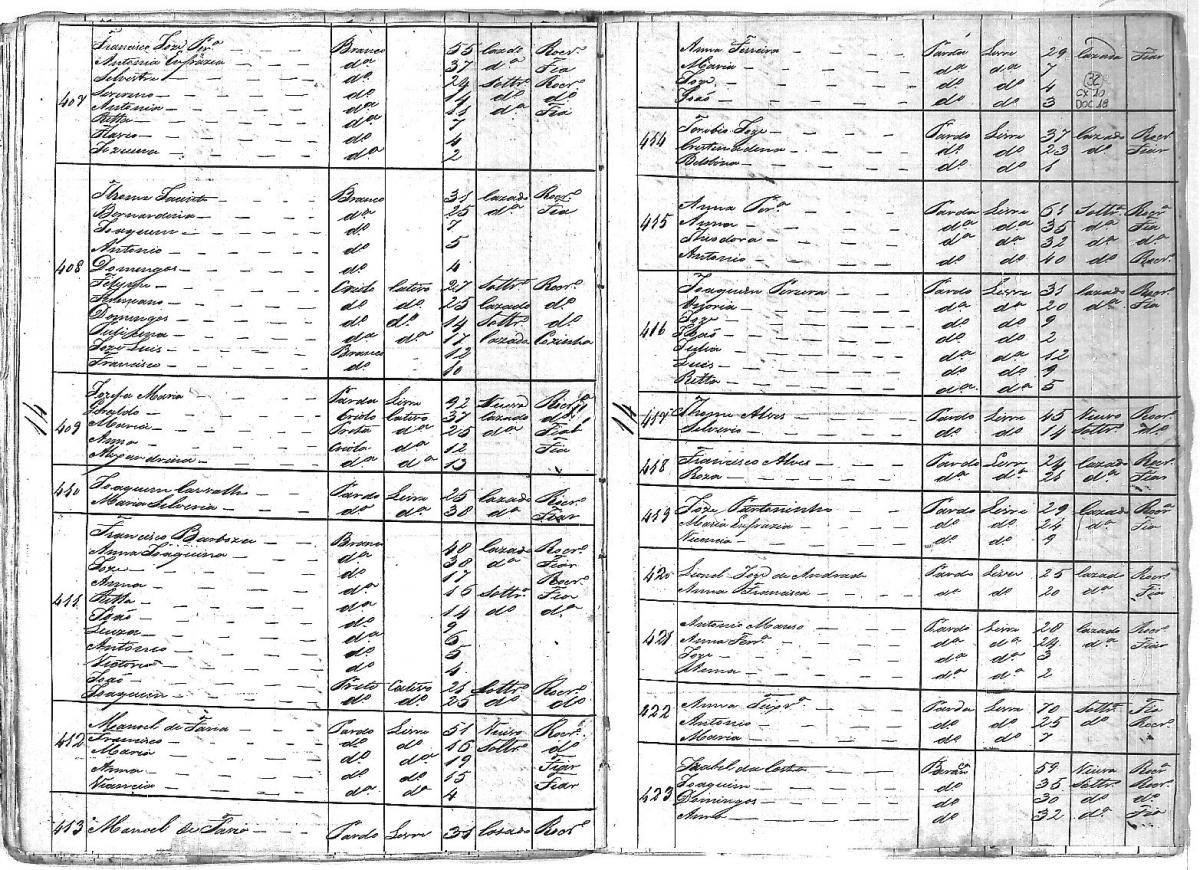 407
Francisco Joze Per.ª Branco 55 Cazdo Rocr.º
Antonia Eufrazia d.ª 37 d.ª Fia
Silvestre d.º 24 Soltr.º Rocr.º
d.º 14 d.º d.º
Antonia d.ª 11 d.ª Fia
Ritta d.ª 7
d.º 4
d.ª 2
408
Jacinto Branco 31 Cazado Rocr.º
Bernardina d.ª 25 d.ª Fia
Joaquim d.º 7
Antonio d.º 5
Domingos d.º 4
Felippe Criolo Cativo 27 Soltr.º Rocr.º
d.º d.º 25 Cazado d.º
Domingos d.º d.º 14 Soltr.º d.º
d.ª d.ª 17 Cazada Cozinha
Joze Luis Branco 12
Francisco d.º 10
409
Jozefa Maria Parda Livre 92 Viuva Rocr.ª
Criolo Cativo 37 Cazado
Maria Preta d.ª 25 d.ª Fiar
Anna Criola d.ª 12 Fia
d.ª d.ª 13
410
Joaquim Carvalho Pardo Livre 25 Cazado Rocr.º
Maria Silveria d.ª d.ª 30 d.ª Fiar
411
Francisco Barboza Branco 40 Cazado Rocr.º
Anna Joaquina d.ª 30 d.ª Fiar
Joze d.º 17 Rocr.º
Anna d.ª 16 Soltr.ª Fia
Ritta d.ª 14 d.º d.ª
João d.º 9
Luiza d.ª 6
Antonio d.º 5
Victoria d.º 4
João Preto Cativo 21 Soltr.º Rocr.º
Joaquim d.º d.º 25 d.º d.º
412
Manoel de Faria Pardo Livre 51 Viuvo Rocr.º
Francisco d.º d.º 16 Soltr.º d.º
Maria d.º d.ª 19 Fiar
Anna d.º d.º 15 Fiar
Vicencia d.ª d.ª 4
413 Manoel de Faria Pardo Livre 31 Cazado Rocr.º
Anna Ferreira Parda Livre 29 Cazada Fiar
Maria d.ª d.ª 7
Joze d.º d.º 4
João d.º d.º 3
32
CX 10
DOC 18
414
Toribio Joze Pardo Livre 37 Cazado Rocr.º
d.º d.º 23 d.º Fiar
d.º d.º 1
415
Anna Per.ª Parda Livre 61 Soltr.ª Rocr.ª
Anna d.ª d.ª 35 d.ª Fia
Theodora d.ª d.ª 32 d.ª d.ª
Antonio d.º d.º 40 d.º Rocr.º
416
Joaquim Pereira Pardo Livre 31 Cazado Rocr.º
d.ª d.ª 20 d.ª Fia
Joze d.º d.º 9
João d.º d.º 2
Julia d.ª d.ª 12
Luis d.º d.º 9
Ritta d.ª d.ª 5
417
Thome Alves Pardo Livre 45 Viuvo Rocr.º
Silverio d.º d.º 14 Soltr.º d.º
418
Francisco Alves Pardo Livre 24 Cazado Rocr.º
Roza d.ª d.ª 21 d.ª Fiar
419
Joze Pardo Livre 29 Cazado Rocr.º
Maria Eufrazia d.º d.º 24 d.ª Fia
Vicencia d.º d.º 9
420
Lionel Joze de Andrade Pardo Livre 25 Cazado Rocr.º
Anna Francisca d.ª d.º 20 d.ª Fia
421
Antonio Pardo Livre 28 Cazado Rocr.º
Anna Ferr.ª d.ª d.ª 24 d.ª Fiar
Joze d.ª d.ª 3
d.ª d.ª 2
422
Anna Parda Livre 70 Soltr.ª Fia
Antonio d.º d.º 25 d.º Rocr.º
Maria d.º d.º 7
423
Izabel da Costa 59 Viuva Rocr.ª
Joaquim d.º 35 Soltr.º Rocr.º
Domingos d.º 30 d.º d.º
Anna d.º 32 d.ª Fia